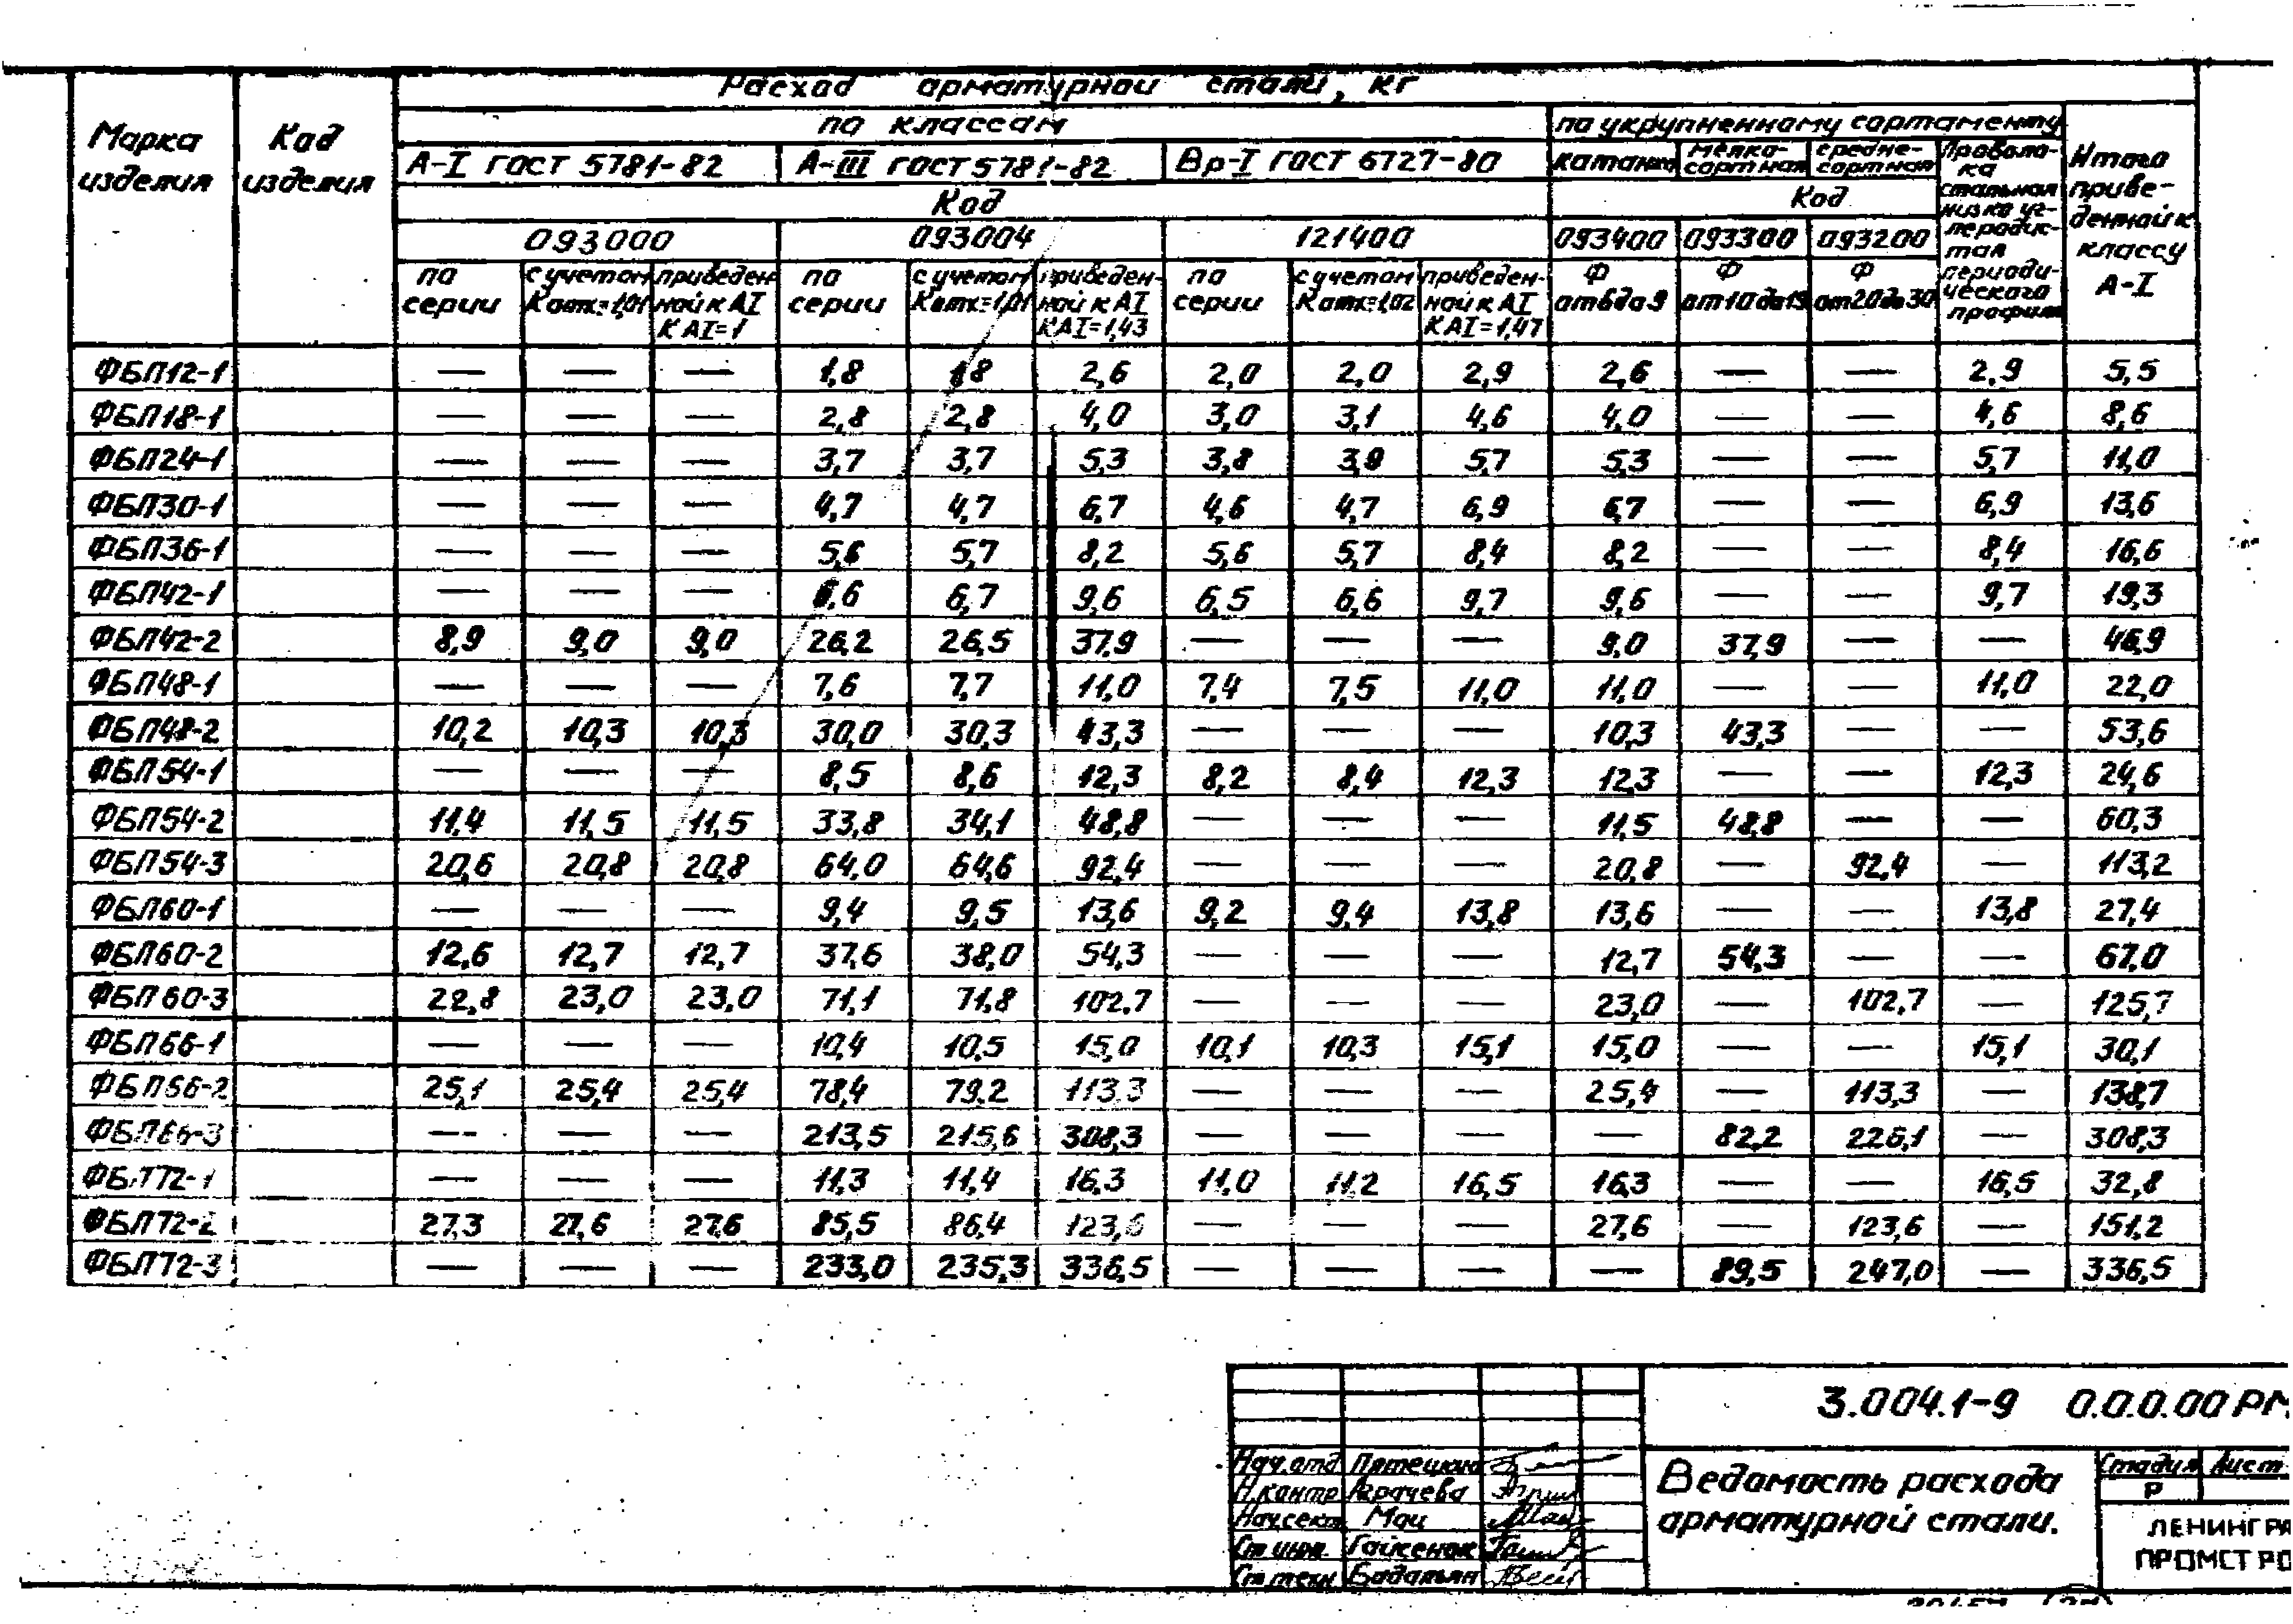 Расход арматурной стали, кг
Марка изделия
Код изделия
по классам
по укрупненному сортаменту
Итого приведенной к классу А-I
А-I ГОСТ 5781-82 А-III ГОСТ 5781-82 Вр-I ГОСТ 6727-80 катанка мелкосортная среднесортная
Проволока стальная низкоуглеродистая периодического профиля
Код Код
093000 093004 121400 093400 093300 093200
по серии
с учетом Kотх=1,01
приведенной к АI КАI=1
по серии
с учетом Kотх=1,01
приведенной к АI КАI=1,43
по серии
с учетом Kотх=1,02
приведенной к АI КАI=1,47
Ф от 6 до 9
Ф от 10 до 19
Ф от 20 до 30
ФБП12-1 — — — 1,8 1,8 2,6 2,0 2,0 2,9 2,6 — — 2,9 5,5
ФБП18-1 — — — 2,8 2,8 4,0 3,0 3,1 4,6 4,0 — — 4,6 8,6
ФБП24-1 — — — 3,7 3,7 5,3 3,8 3,9 5,7 5,3 — — 5,7 11,0
ФБП30-1 — — — 4,7 4,7 6,7 4,6 4,7 6,9 6,7 — — 6,9 13,6
ФБП36-1 — — — 5,6 5,7 8,2 5,6 5,7 8,4 8,2 — — 8,4 16,6
ФБП42-1 — — — 6,6 6,7 9,6 6,5 6,6 9,7 9,6 — — 9,7 19,3
ФБП42-2 8,9 9,0 9,0 26,2 26,5 37,9 — — — 9,0 37,9 — — 46,9
ФБП48-1 — — — 7,6 7,7 11,0 7,4 7,5 11,0 11,0 — — 11,0 22,0
ФБП48-2 10,2 10,3 10,3 30,0 30,3 43,3 — — — 10,3 43,3 — — 53,6
ФБП54-1 — — — 8,5 8,6 12,3 8,2 8,4 12,3 12,3 — — 12,3 24,6
ФБП54-2 11,4 11,5 11,5 33,8 34,1 48,8 — — — 11,5 48,8 — — 60,3
ФБП54-3 20,6 20,8 20,8 64,0 64,6 92,4 — — — 20,8 — 92,4 — 113,2
ФБП60-1 — — — 9,4 9,5 13,6 9,2 9,4 13,8 13,6 — — 13,8 27,4
ФБП60-2 12,6 12,7 12,7 37,6 38,0 54,3 — — — 12,7 54,3 — — 67,0
ФБП60-3 22,8 23,0 23,0 71,1 71,8 102,7 — — — 23,0 — 102,7 — 125,7
ФБП66-1 — — — 10,4 10,5 15,0 10,1 10,3 15,1 15,0 — — 15,1 30,1
ФБП66-2 25,1 25,4 25,4 78,4 79,2 113,3 — — — 25,4 — 113,3 — 138,7
ФБП66-3 — — — 213,5 215,6 308,3 — — — — 82,2 226,1 — 308,3
ФБП72-1 — — — 11,3 11,4 16,3 11,0 11,2 16,5 16,3 — — 16,5 32,8
ФБП72-2 27,3 27,6 27,6 85,5 86,4 123,6 — — — 27,6 — 123,6 — 151,2
ФБП72-3 — — — 233,0 235,3 336,5 — — — — 89,5 247,0 — 336,5
3.004.1-9 0.0.0.00 РМ
Нач.отд
Н.контр Грачева
Нач.сект Мац
Ст.инж.
Ст.техн Бадальян
Ведомость расхода
арматурной стали.
Стадия Лист
Р
ЛЕНИНГРА
ПРОМСТРО